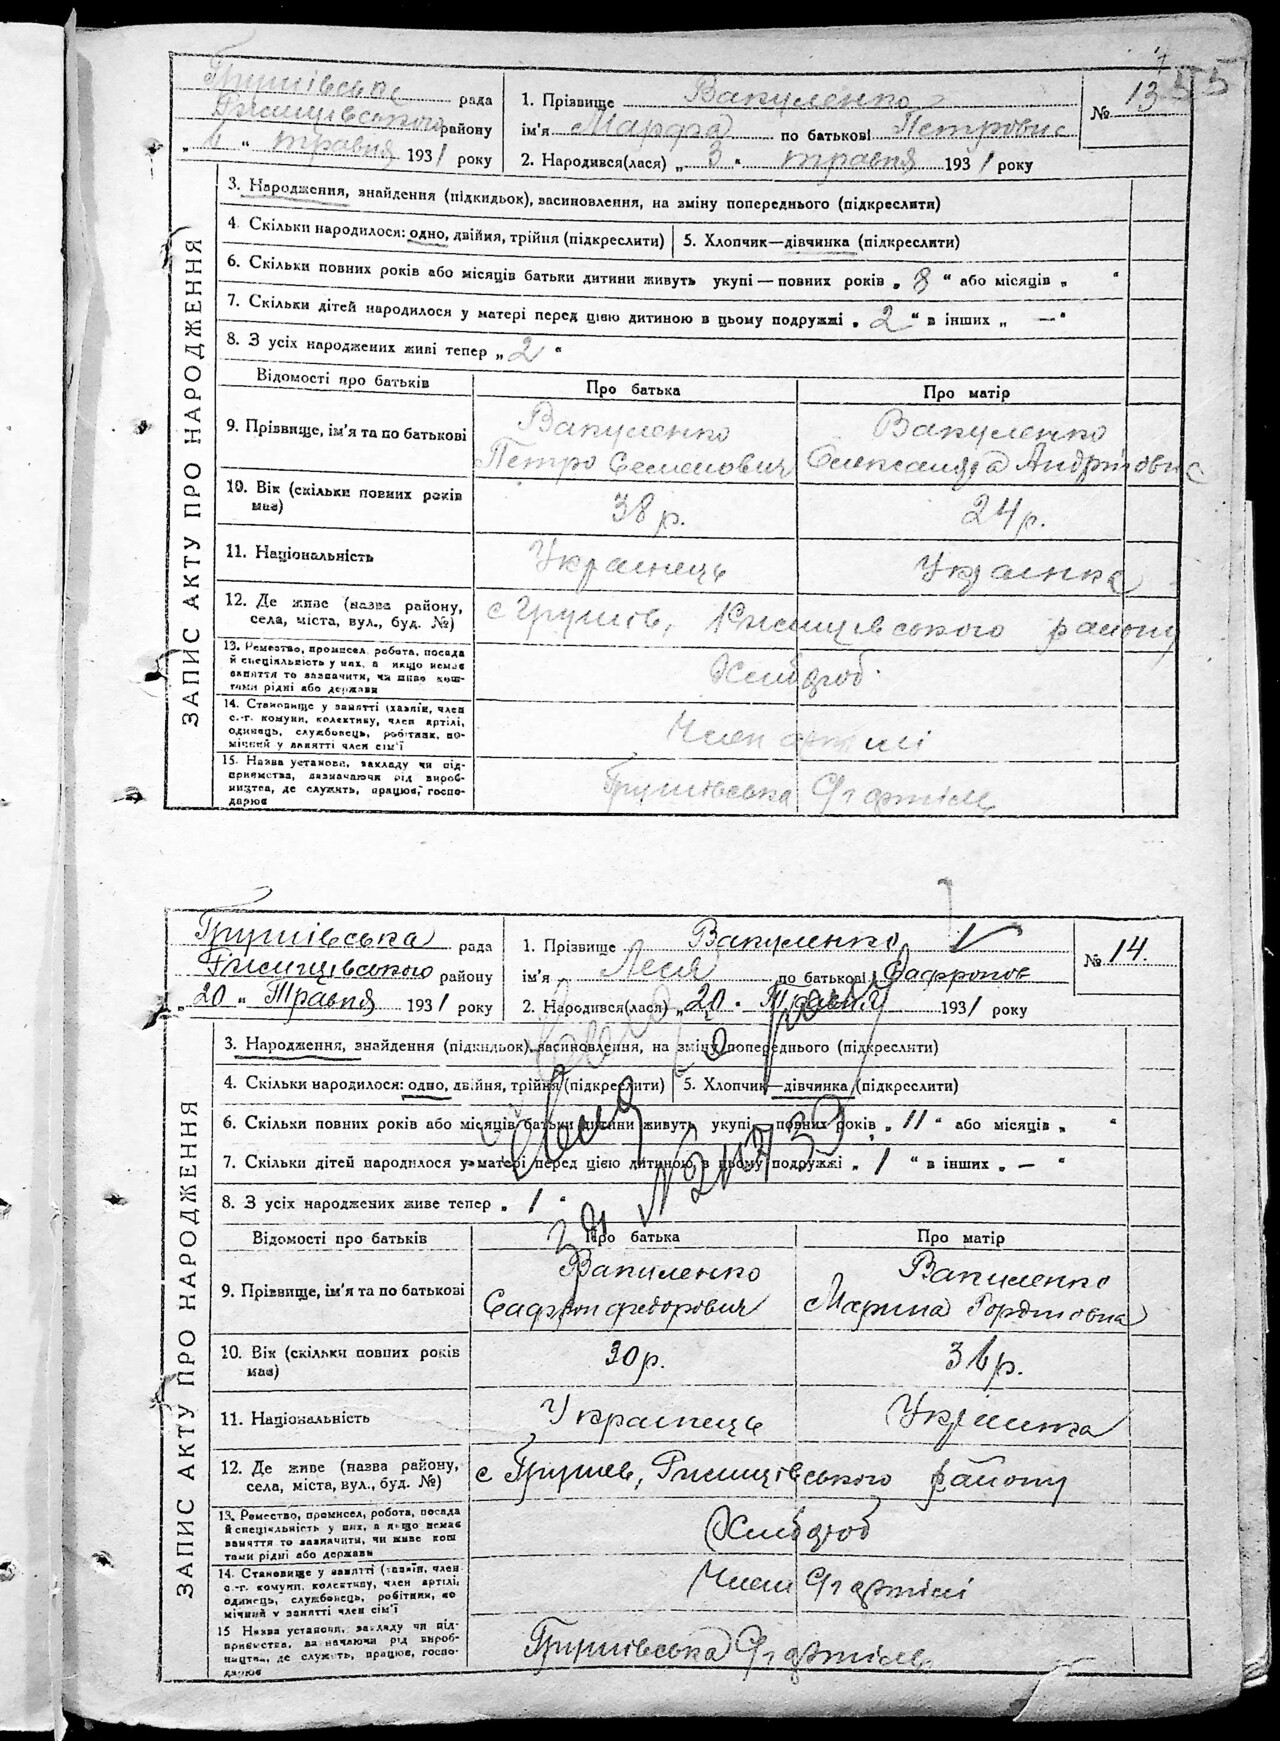 55
ЗАПИС АКТУ ПРО НАРОДЖЕННЯ
Грушівська рада
Ржищівського району
„ 6 “ травня 1931 року
1. Прізвище Вакуленко
ім'я Марфа по батькові Петровна
2. Народився(лася) „ 3 “ травня 1931 року
№ 13
3. Народження, знайдення (підкидьок), засиновлення, на зміну попереднього (підкреслити)
4. Скільки народилося: одно, двійня, трійня (підкреслити)
5. Хлопчик—дівчинка (підкреслити)
6. Скільки повних років або місяців батьки дитини живуть укупі — повних років „ 8 “ або місяців „ “
7. Скільки дітей народилося у матері перед цією дитиною в цьому подружжі „ 2 “ в інших „ — “
8. З усіх народжених живі тепер „ 2 “
Відомості про батьків Про батька Про матір
9. Прізвище, ім'я та по батькові
Вакуленко
Петро Семенович
Вакуленко
Олександра Андріївна
10. Вік (скільки повних років має)
38 р. 24 р.
11. Національність Українець Українка
12. Де живе (назва району,
села, міста, вул., буд. №)
с Грушів, Ржищівського району
13. Ремество, промисел, робота, посада
й спеціяльність у них, а якщо немає
заняття то зазначити, чи живе кош-
тами рідні або держави
Хлібороб
14. Становище у занятті (хазяїн, член
с.-г. комуни, колективу, член артілі,
одинець, службовець, робітник, по-
мічний у занятті член сім'ї
Член артілі
15. Назва установи, закладу чи під-
приємства, зазначаючи рід вироб-
ництва, де служить, працює, госпо-
дарює
Грушівська С/г артіль
ЗАПИС АКТУ ПРО НАРОДЖЕННЯ
Грушівська рада
Ржищівського району
„ 20 “ Травня 1931 року
1. Прізвище Вакуленко
ім'я Леся по батькові Сафронов
2. Народився(лася) „ 20 “ Травня 1931 року
№ 14.
3. Народження, знайдення (підкидьок), засиновлення, на зміну попереднього (підкреслити)
4. Скільки народилося: одно, двійня, трійня (підкреслити)
5. Хлопчик—дівчинка (підкреслити)
6. Скільки повних років або місяців батьки дитини живуть укупі — повних років „ 11 “ або місяців „ “
7. Скільки дітей народилося у матері перед цією дитиною в цьому подружжі „ 1 “ в інших „ — “
8. З усіх народжених живе тепер „ 1 “
Відомості про батьків Про батька Про матір
9. Прізвище, ім'я та по батькові
Вакуленко
Сафрон Федорович
Вакуленко
Марина Гордіївна
10. Вік (скільки повних років має)
30 р. 36 р.
11. Національність Українець Українка
12. Де живе (назва району,
села, міста, вул., буд. №)
с Грушев, Ржищівського району
13. Ремество, промисел, робота, посада
й спеціяльність у них, а якщо немає
заняття то зазначити, чи живе кош
тами рідні або держави
Хлібороб
14. Становище у занятті (хазяїн, член
с.-г. комуни, колективу, член артілі,
одинець, службовець, робітник, по
мічний у занятті член сім'ї
Член С/г артілі
15 Назва установи, закладу чи під-
приємства, зазначаючи рід вироб-
ництва, де служить, працює, госпо-
дарює
Грушівська С/г артіль